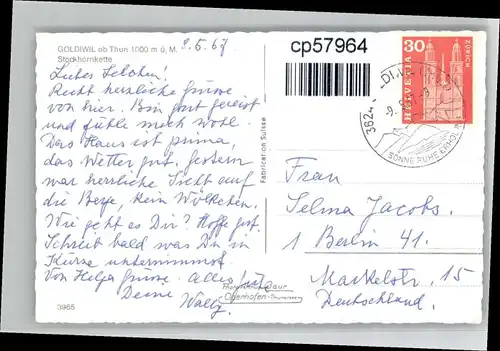 GOLDIWIL ob Thun 1000 m ü. M.
Stockhornkette
8.5.67
cp57964
30
HELVETIA
ZÜRICH
3624
SONNE RUHE ERHOLUNG
Recht herzliche Grüsse
von hier. Bin gut gereist
und fühle mich wohl.
Das Haus ist prima,
das Wetter gut, gestern
war herrliche Sicht auf
die Berge, kein Wölkchen.
Wie geht es Dir? Hoffe gut.
Schreib bald was Du in
Kürze unternimmst.
Von Helga Grüsse. Alles Gute
Deine
Wally
Fabrication Suisse
Frau
Selma Jacobs.
1 Berlin 41.
Markelstr. 15
Deutschland.
Gaur
Oberhofen
3965